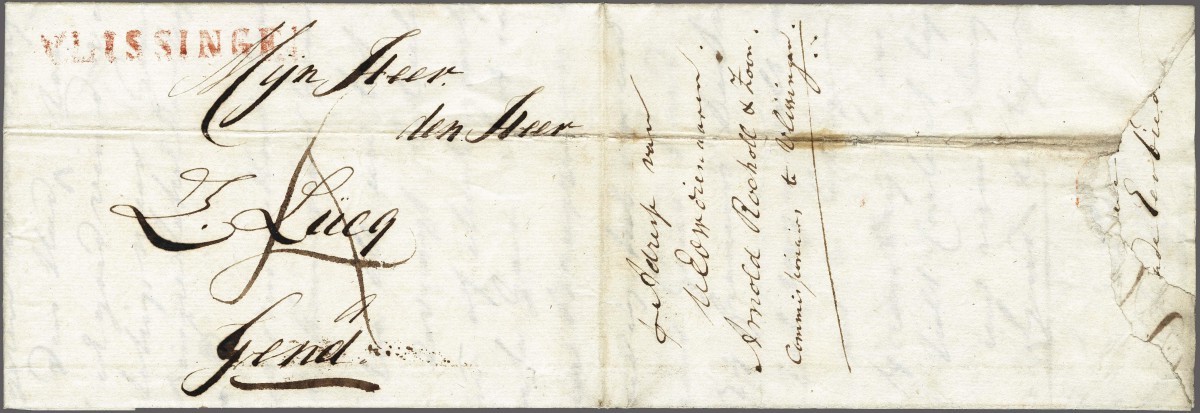 VLISSINGEN
Mijn Heer
den Heer
L. Lücq
Gend
p. adress van
UEdWdienaaren
Arnold Rocholl & Zoon.
Commissionairs te Vlissingen.